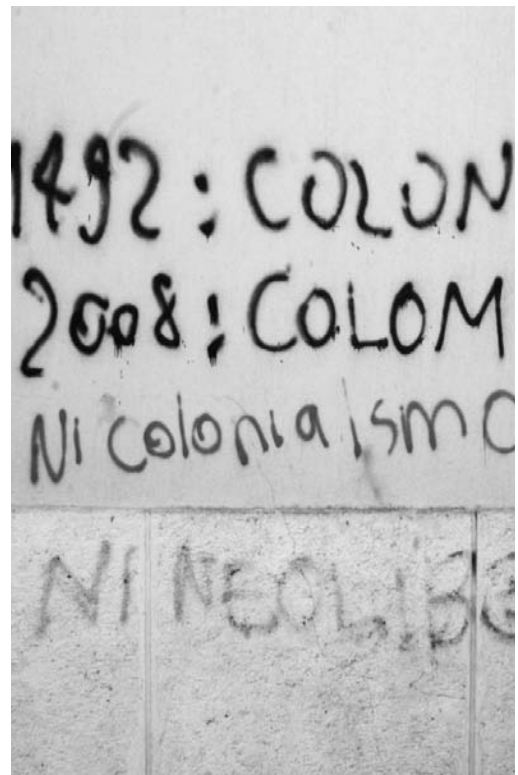 1492: COLON
2008: COLOM
Ni colonialsmo
NI NEOLIBE